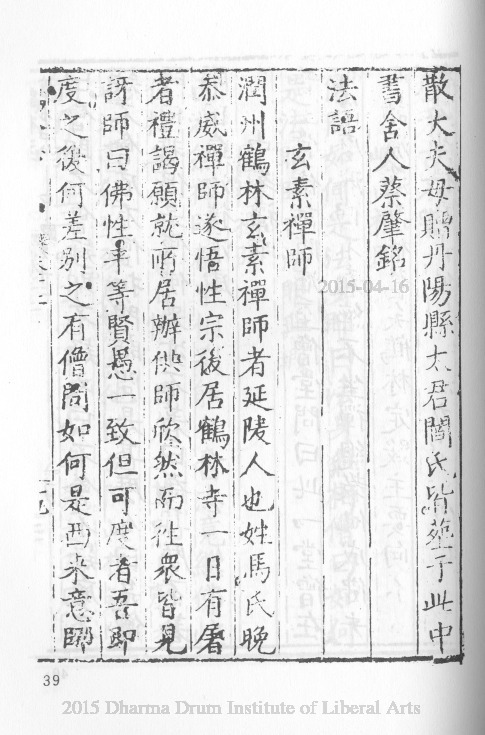 散大夫母贈丹陽縣太君閻氏皆葬于此中
書舍人蔡肇銘
法語
玄素禪師
潤州鶴林玄素禪師者延陵人也姓馬氏晚
叅威禪師遂悟性宗後居鶴林寺一日有屠
者禮謁願就所居辦供師欣然而往衆皆見
訝師曰佛性平等賢愚一致但可度者吾即
度之後何差別之有僧問如何是西来意師
2015-04-16
39
2015 Dharma Drum Institute of Liberal Arts